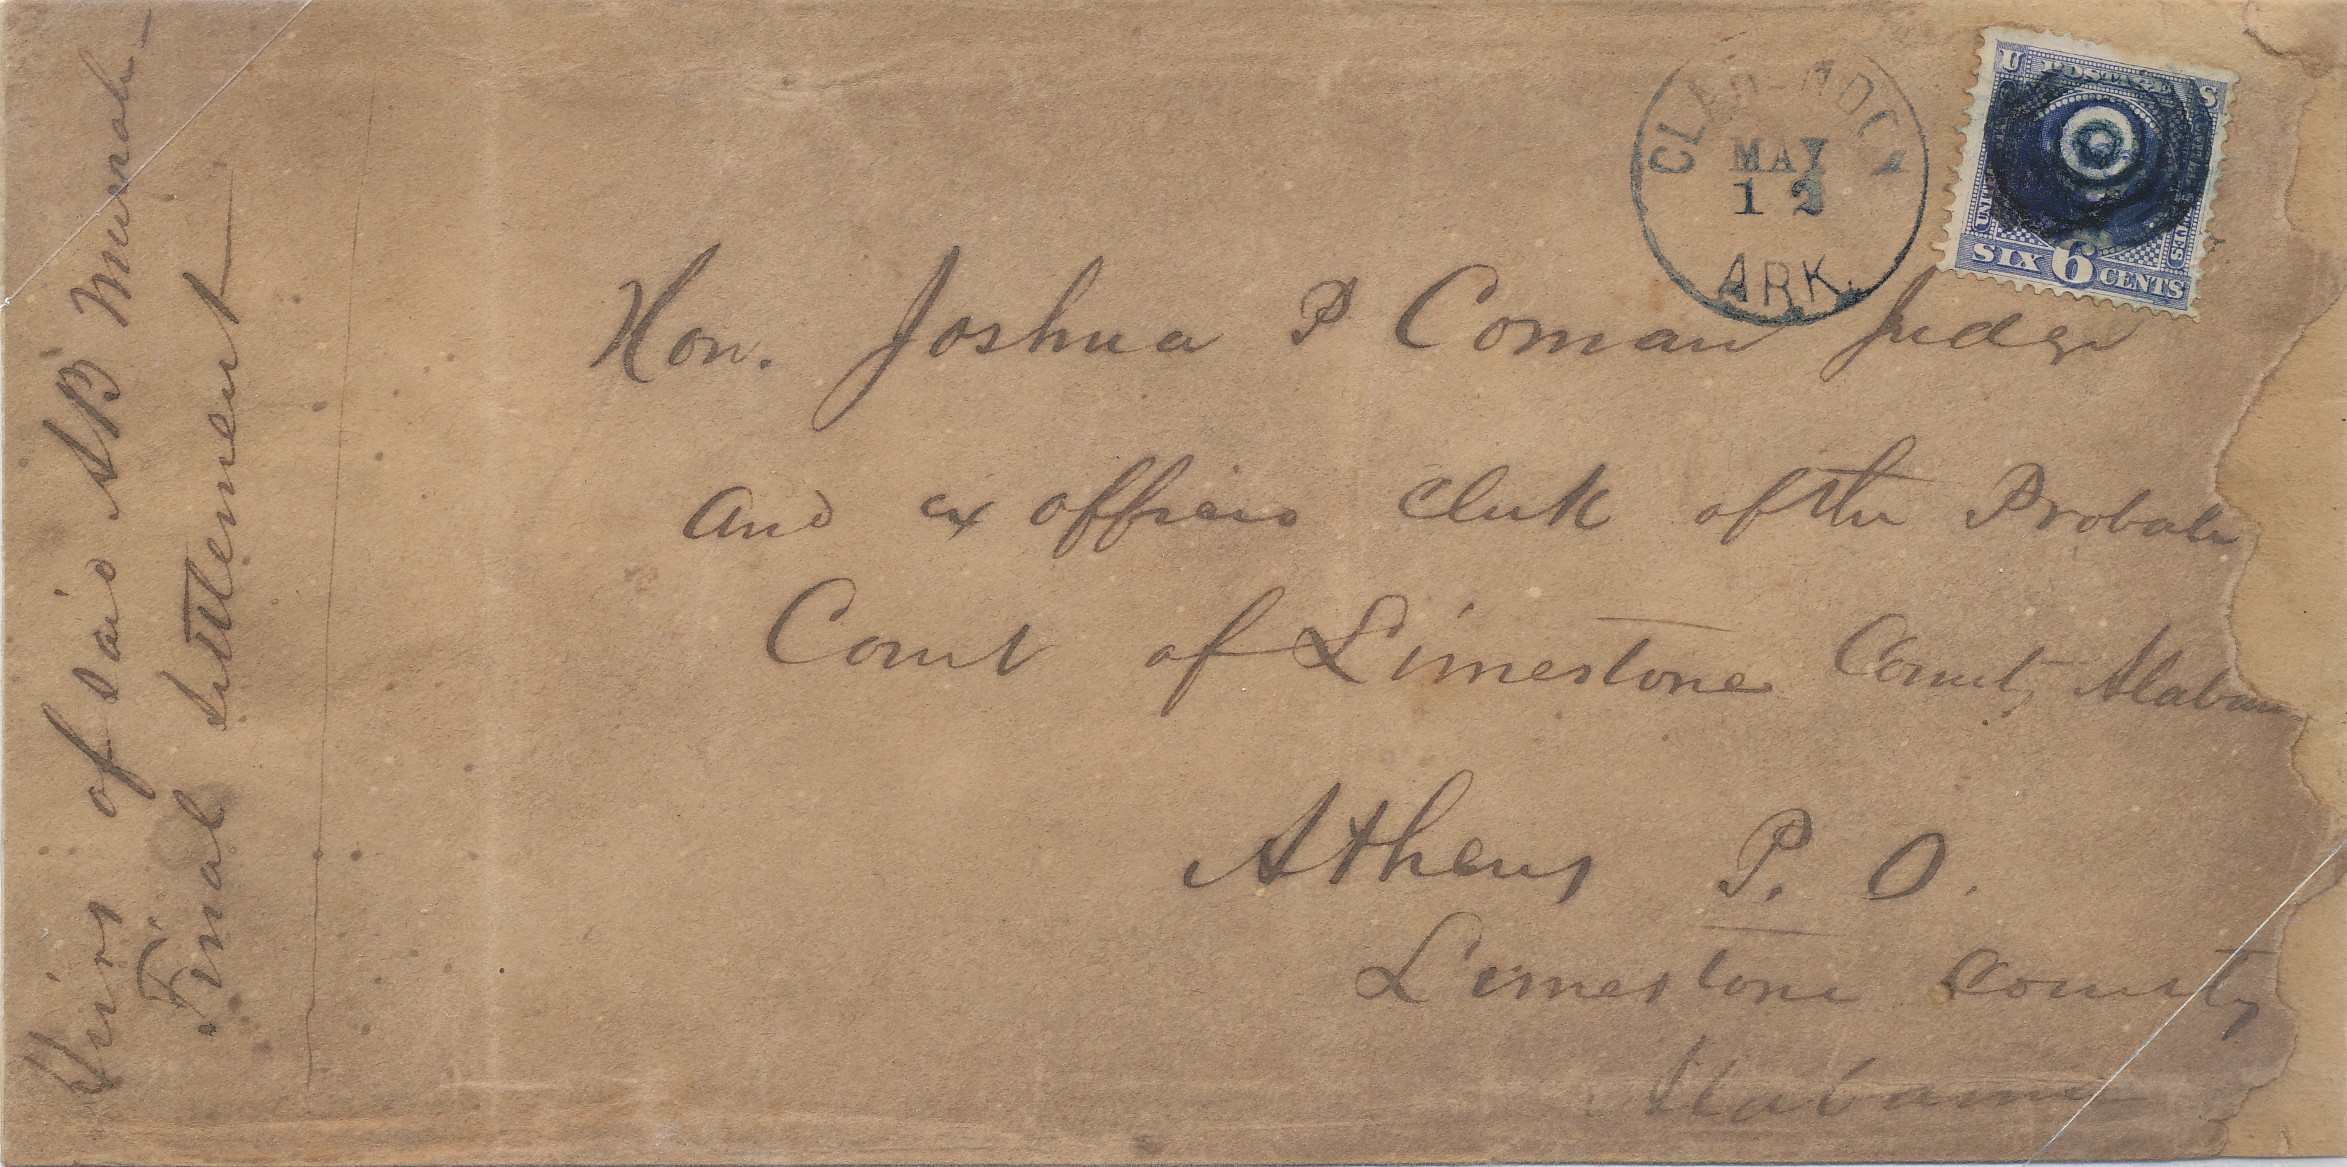 Heirs of said AB
Final Settlement
CLARENDON
MAY
12
ARK.
U S
POSTAGE
SIX 6 CENTS
Hon. Joshua P Coman Judge
and ex officio clerk of the Probate
Court of Limestone County Alabama
Athens P. O.
Limestone County
Alabama